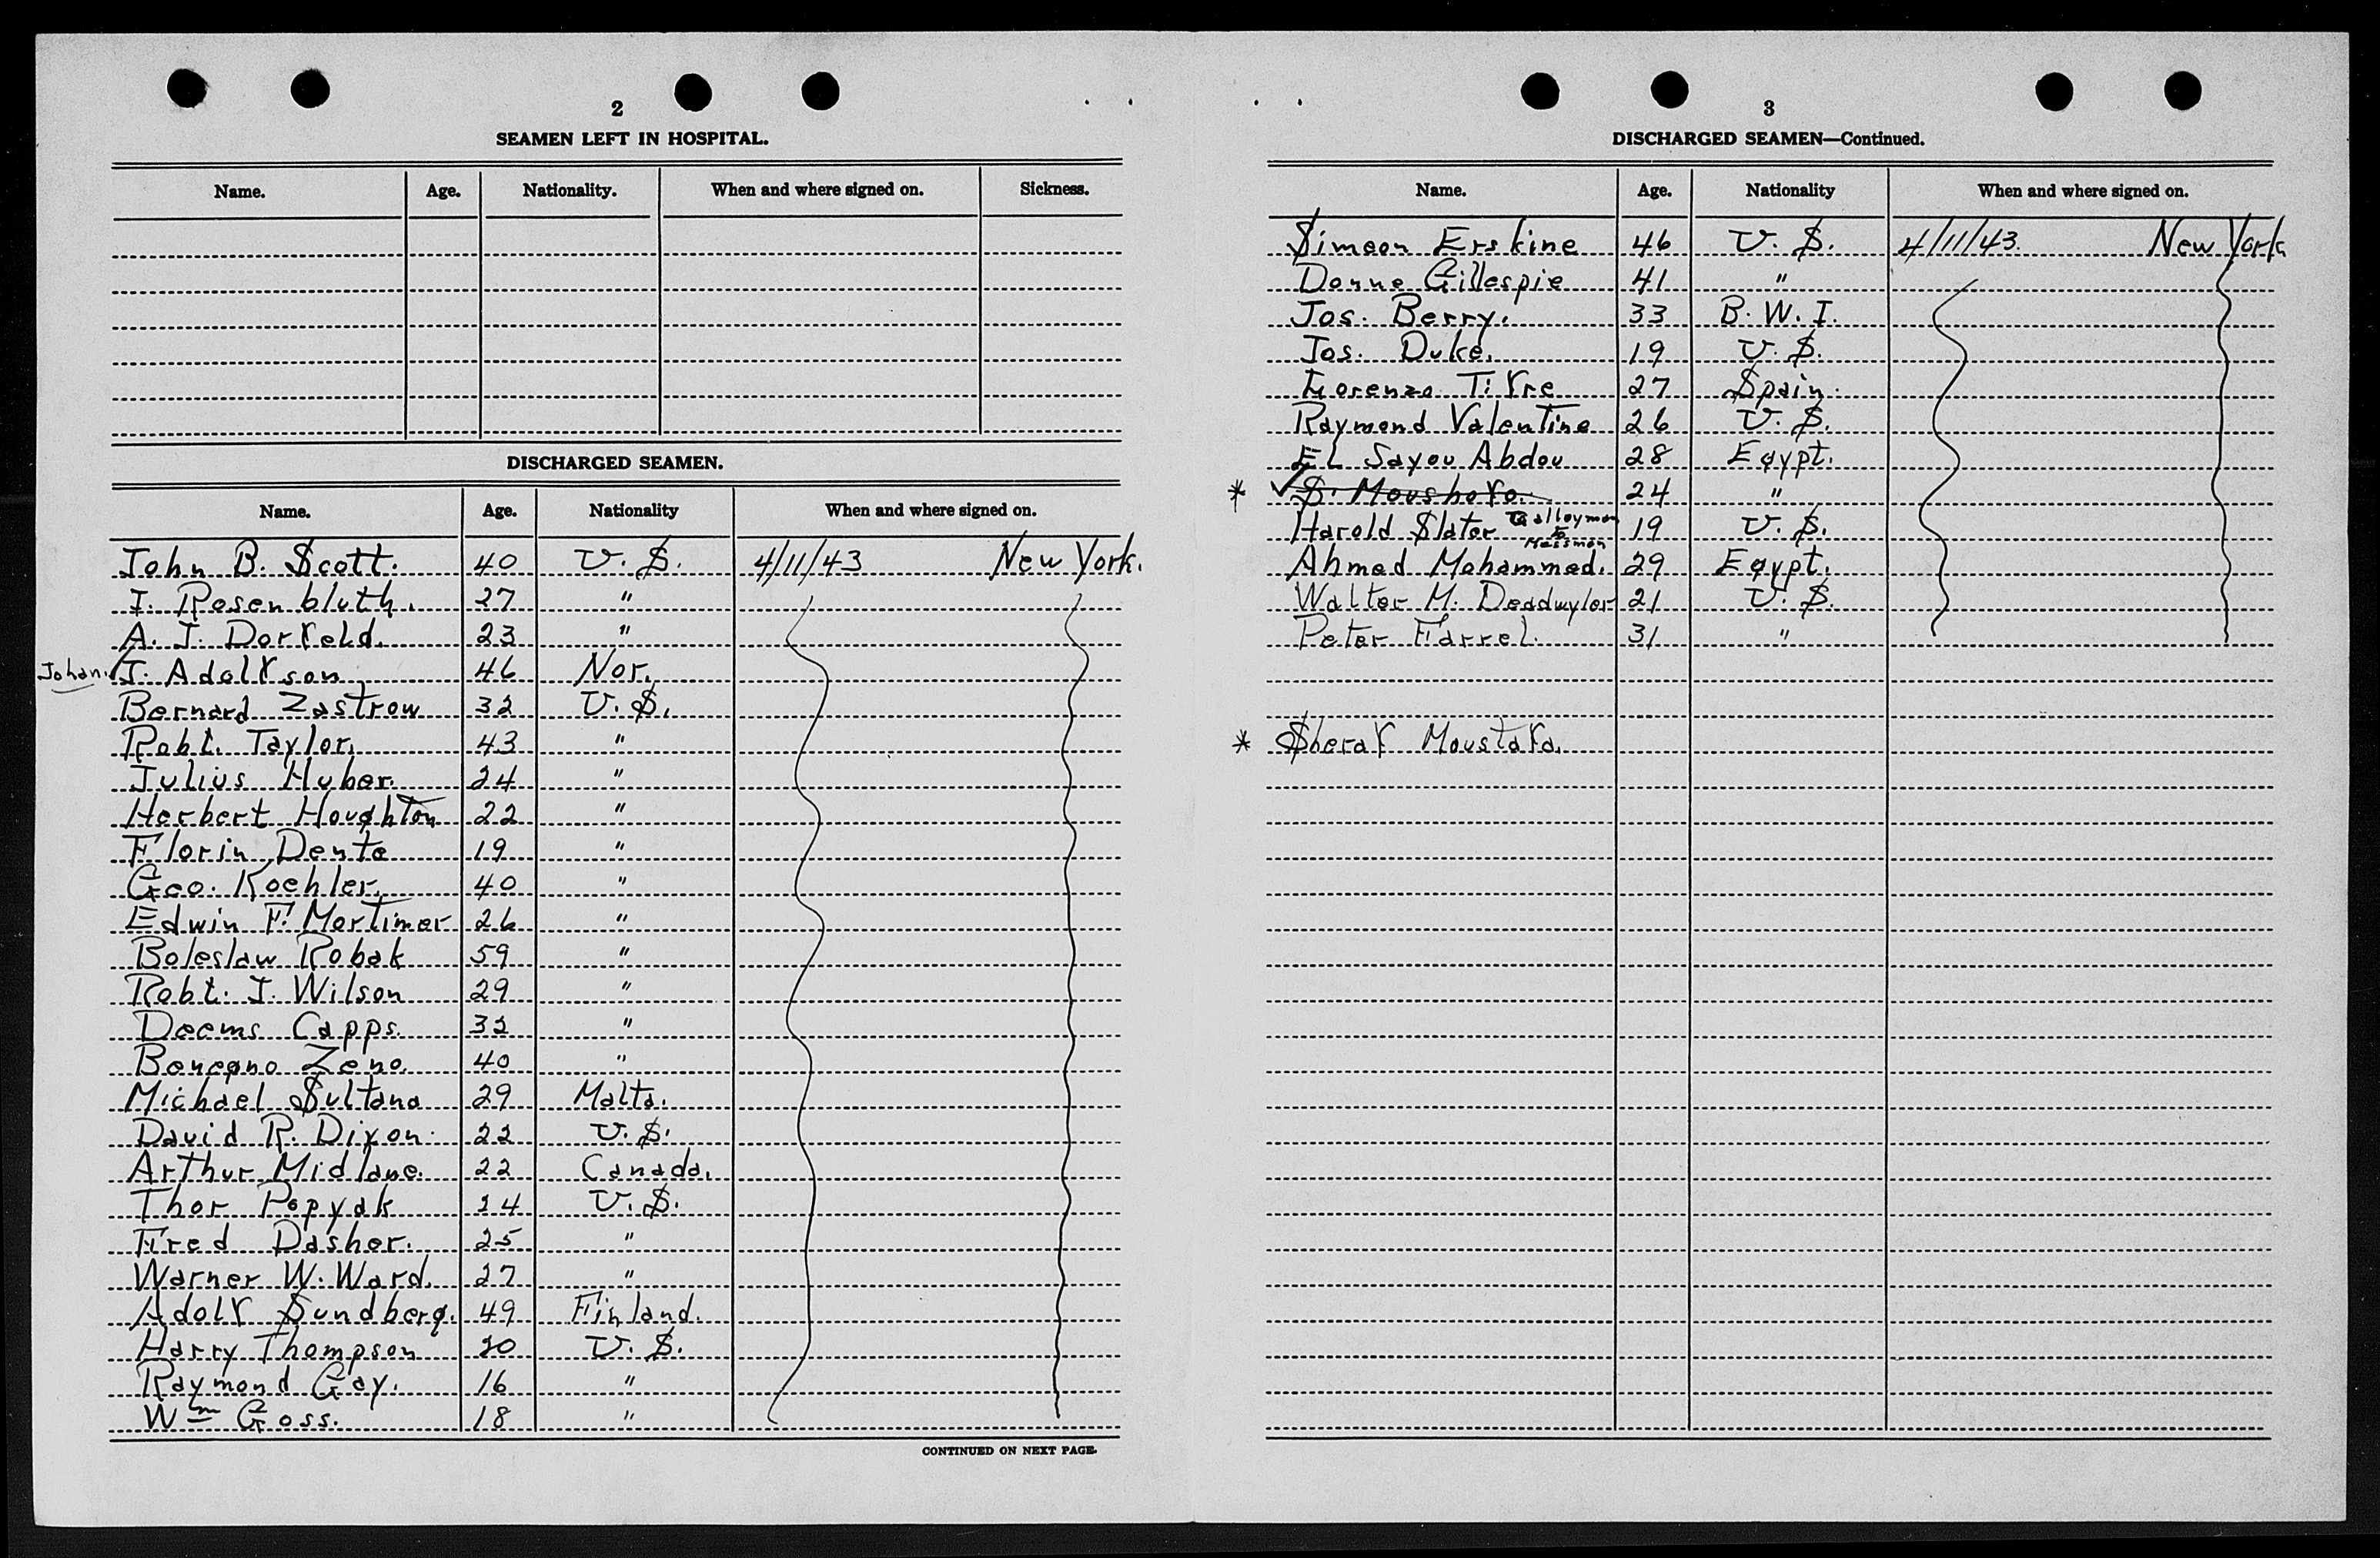 2
SEAMEN LEFT IN HOSPITAL.
Name. Age. Nationality. When and where signed on. Sickness.
DISCHARGED SEAMEN.
Name. Age. Nationality When and where signed on.
John B. Scott. 40 U.S. 4/11/43 New York.
I. Rosenbluth. 27 "
A. J. Dorfeld. 23 "
Johan. J. Adolfson 46 Nor.
Bernard Zastrow 32 U.S.
Robt. Taylor. 43 "
Julius Huber. 24 "
Herbert Houghton 22 "
Florin Dente 19 "
Geo. Koehler. 40 "
Edwin F. Mortimer 26 "
Boleslaw Robak 59 "
Robt. J. Wilson 29 "
Deems Capps. 32 "
Benegno Zeno. 40 "
Michael Sultana 29 Malta.
David R. Dixon. 22 U.S.
Arthur Midlane. 22 Canada.
Thor Popyak 24 U.S.
Fred Dasher. 25 "
Warner W. Ward. 27 "
Adolf Sundberg. 49 Finland.
Harry Thompson 20 U.S.
Raymond Gay. 16 "
Wm Goss. 18 "
CONTINUED ON NEXT PAGE.
3
DISCHARGED SEAMEN—Continued.
Name. Age. Nationality When and where signed on.
Simeon Erskine 46 U.S. 4/11/43. New York
Donne Gillespie 41 "
Jos. Berry. 33 B.W.I.
Jos. Duke. 19 U.S.
Lorenzo Tifre 27 Spain.
Raymond Valentine 26 U.S.
EL Sayou Abdou 28 Egypt.
* S. Moushofa. 24 "
Harold Slater Galleyman to Messman 19 U.S.
Ahmed Mohammed. 29 Egypt.
Walter M. Deadwyler 21 U.S.
Peter Farrel. 31 "
* Sheraf Moustafa.